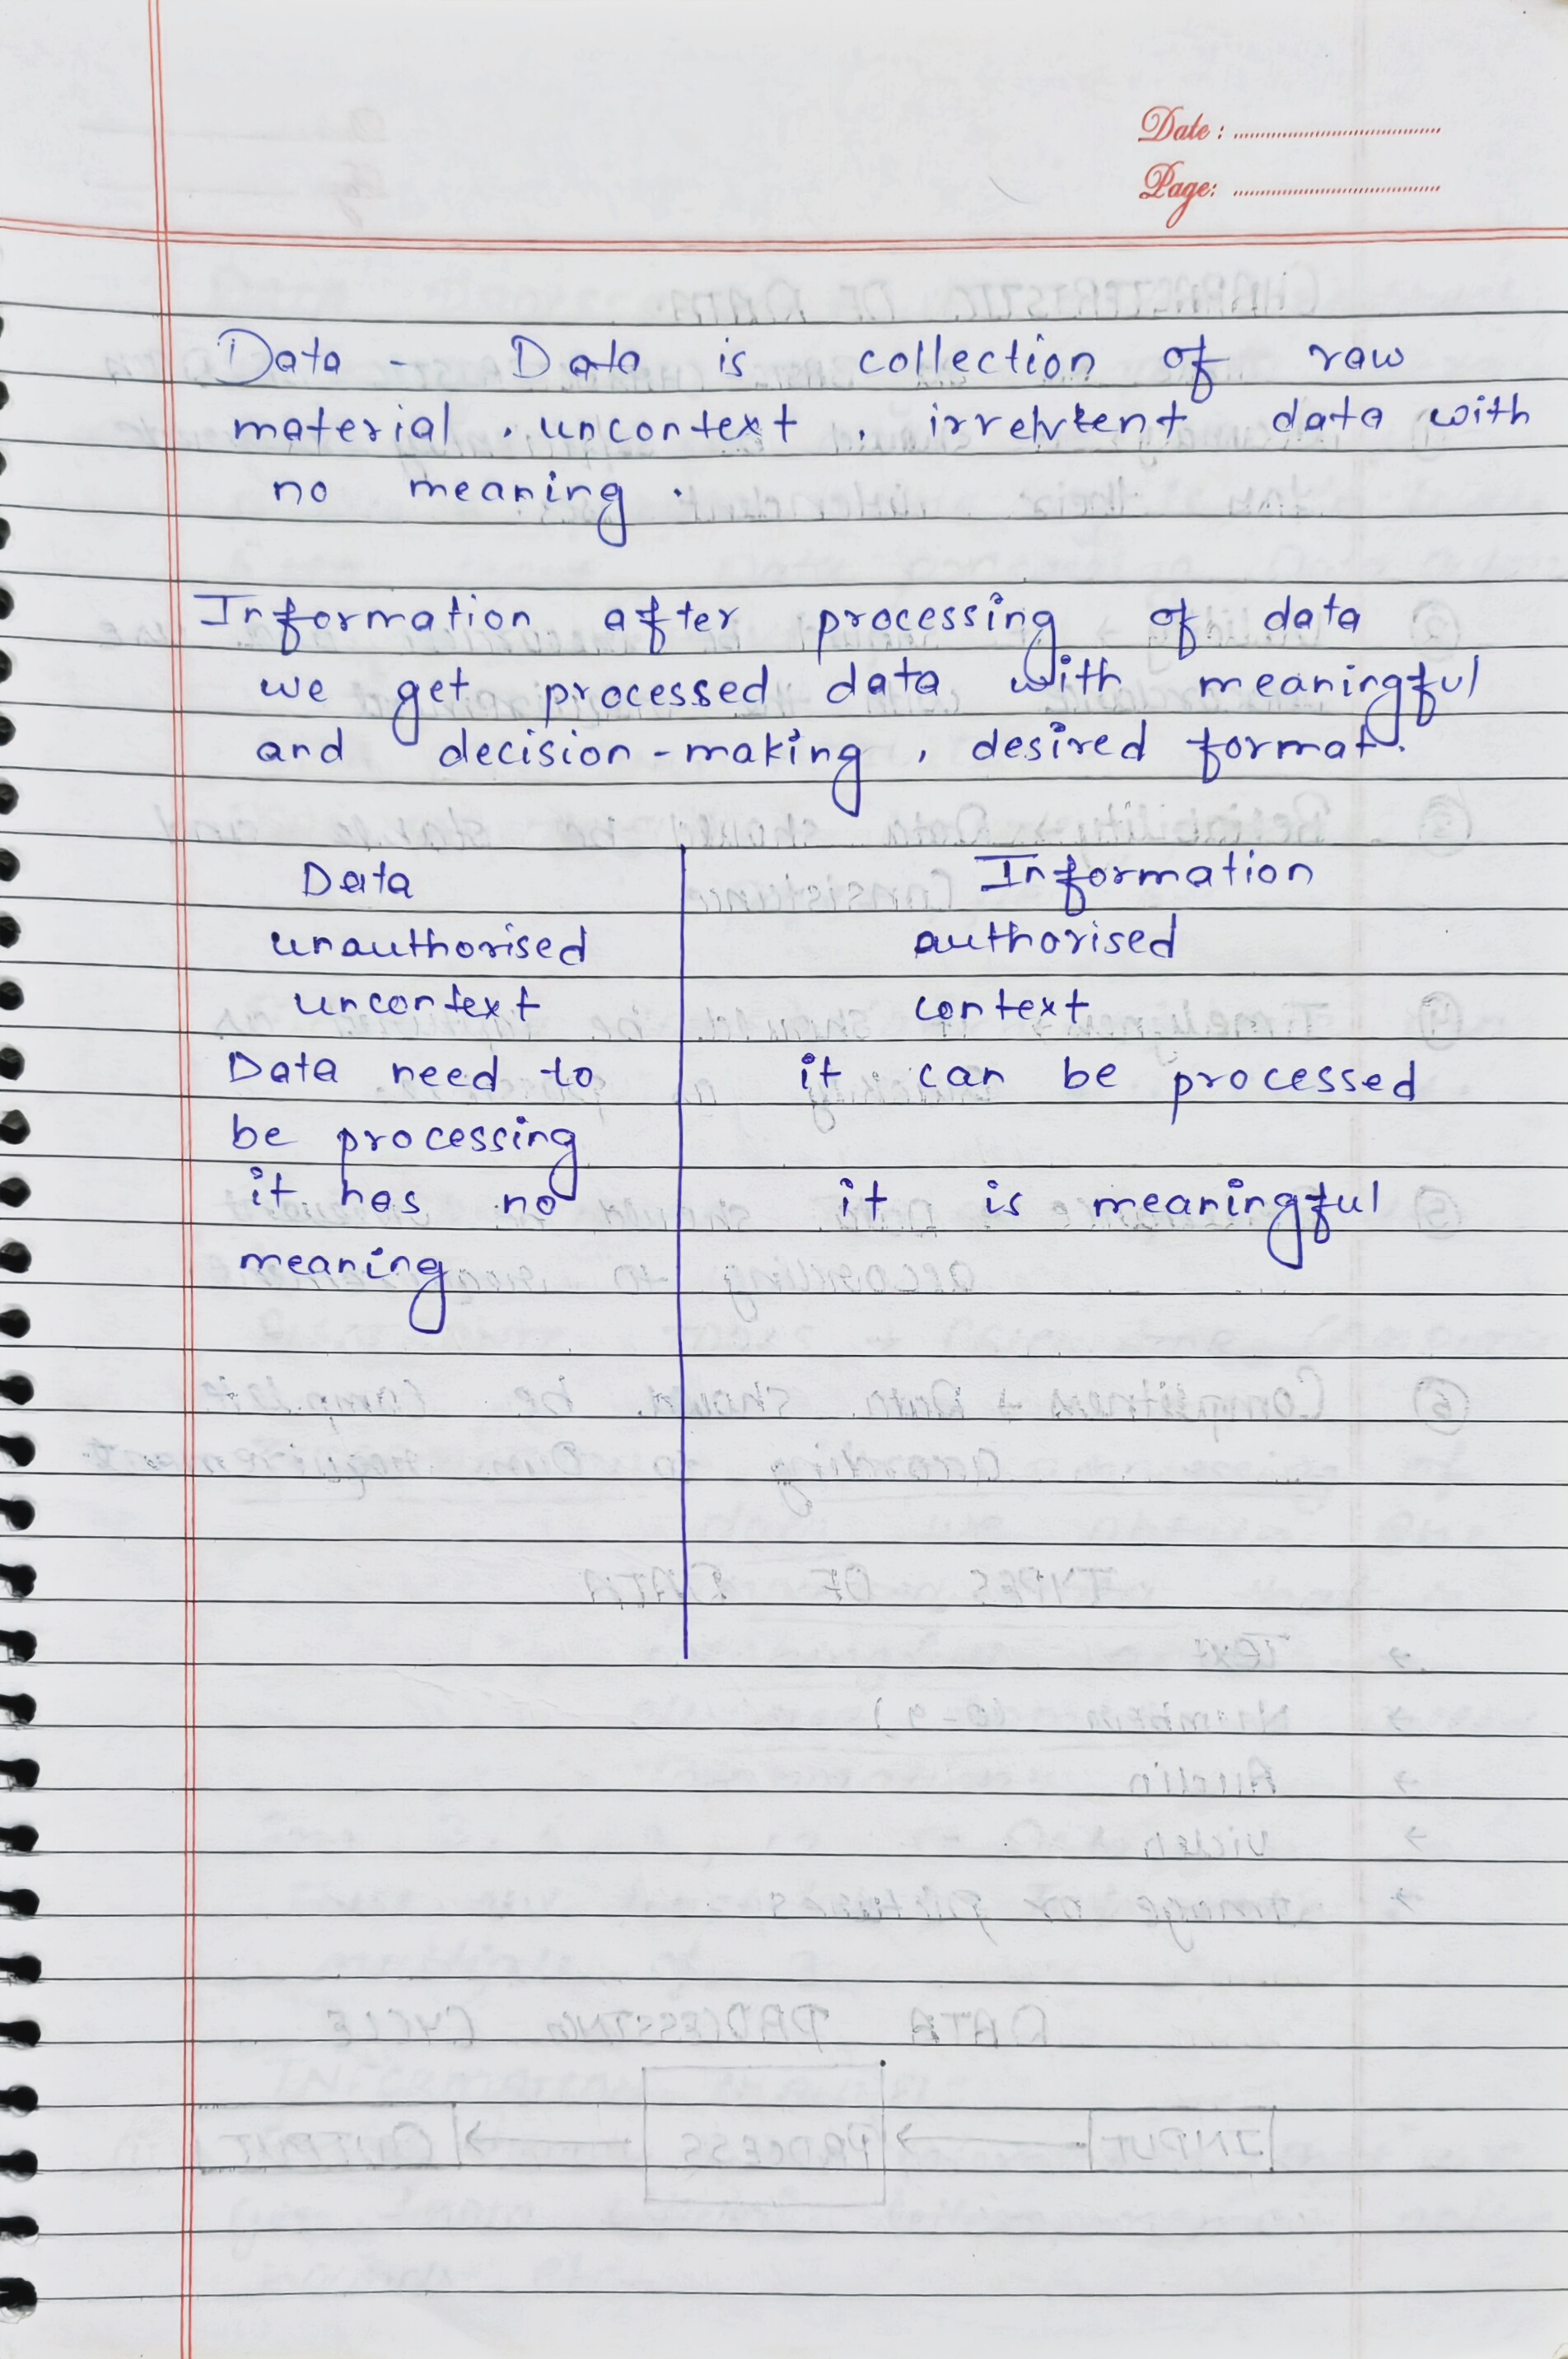 Date :
Page:
Data - Data is collection of raw
material . uncontext , data with
no meaning .
Information after processing of data
we get processed data with meaningful
and decision-making , desired format.
Data | Information
unauthorised | authorised
uncontext | context
Data need to | it can be processed
be processing
it has no | it is meaningful
meaning